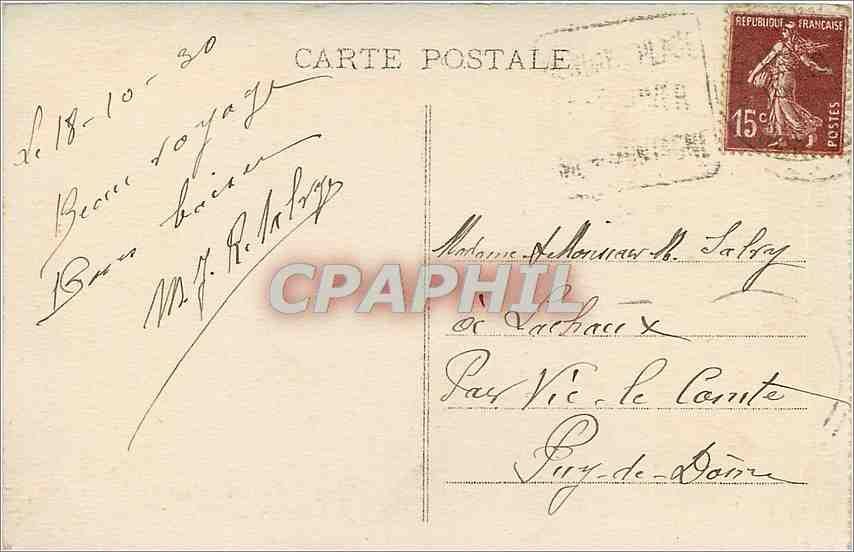 CARTE POSTALE
REPUBLIQUE FRANCAISE
15c
POSTES
PLAGE
Le 18-10-30
Beau voyage
Bons baisers
M. J. R.
Madame & Monsieur M. Salvy
à Lachaux
Par Vic-le Comte
Puy-de-Dôme
CPAPHIL